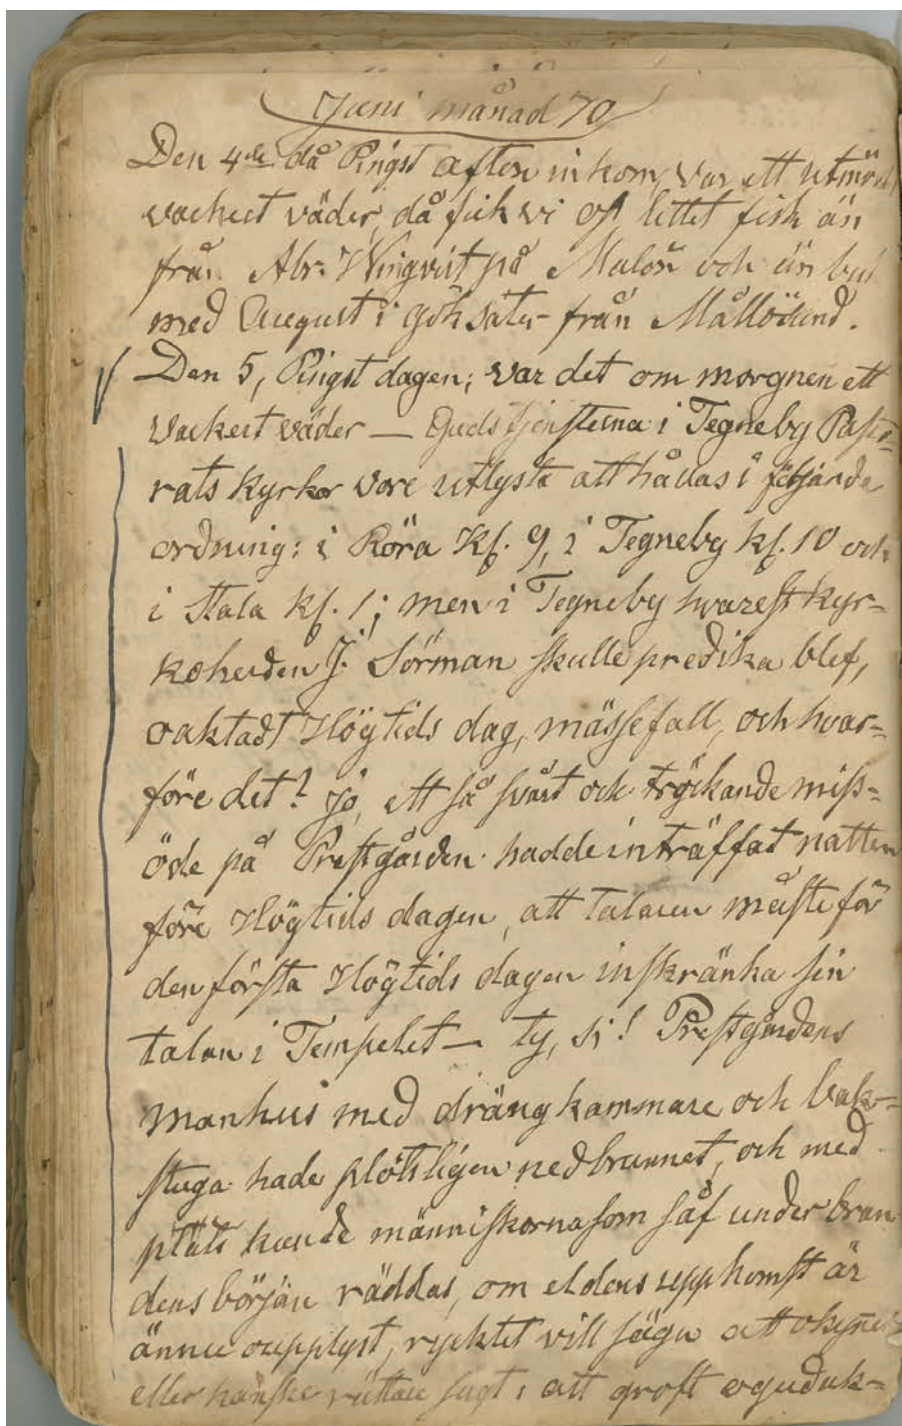 Juni månad 70
Den 4de då Pingst afton inkom, var ett utmärkt
vackert väder, då fick vi oss littet fisk än
från Abr. Wingqvist på Malön och än
med August i Göksäter från Mållösund.
Den 5, Pingst dagen; var det om morgnen ett
Vackert väder — Gudstjensterna i Tegneby Pasto-
rats kyrkor vore utlysta att hållas i följande
ordning: i Röra Kl. 9, i Tegneby kl. 10 och
i Stala Kl. 1; men i Tegneby hvarest kyr-
koherden J. Sörman skulle predika blef,
oaktadt Högtids dag, mässefall, och hvar-
före det? jo, ett så svårt och tryckande miss-
öde på Prestgården hadde inträffat natten
före Högtids dagen, att talaren måste för
den första Högtids dagen inskränka sin
talan i Tempelet — ty, si! Prestgårdens
manhus med drängkammare och bak-
stuga hade plötsligen nedbrunnet, och med
plats kunde människorna som såf under bran
dens början räddas, om eldens uppkomst är
ännu oupplyst, ryktet vill säga att
eller kanske rättare sagt: att groft oguduk-